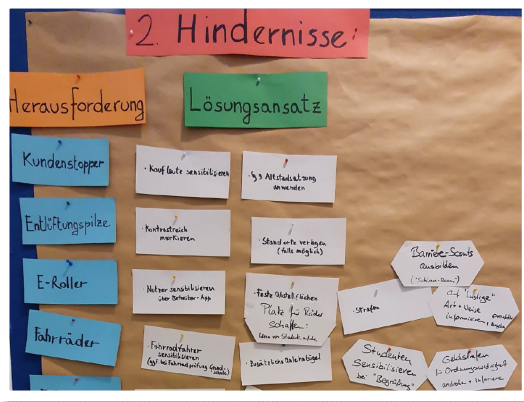 2. Hindernisse:
Herausforderung
Lösungsansatz
Kundenstopper
· Kaufleute sensibilisieren
Altstadtsatzung
anwenden
Entlüftungspilze
· Kontrastreich
markieren
· Standorte verlegen
(falls möglich)
E-Roller
· Nutzer sensibilisieren
über Betreiber-App
· Feste Abstellflächen
Platz für Räder
schaffen
· Strafen
Barriere-Scouts
ausbilden
auf "lustige"
Art + Weise
informieren
Fahrräder
· Fahrradfahrer
sensibilisieren
(ggf. bei Fahrradprüfung
· Zusätzliche
Studenten
Sensibilisieren
bei "Begrüßung"
Geldstrafen